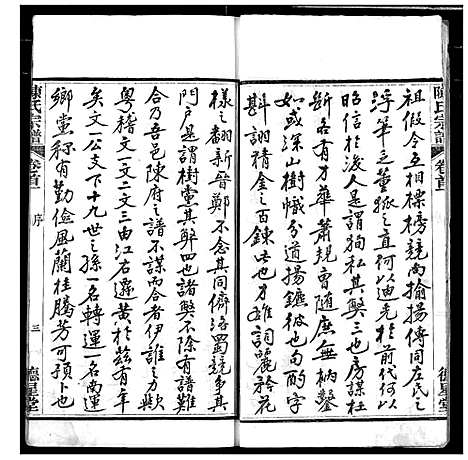 陳氏宗譜 卷首
祖假令互相標榜競尚揄揚傳同左氏之
浮筆乏董狐之直何以迪光於前代何以
昭信於後人是謂狥私其獘三也房謀杜
斷各有才華蕭規曹隨庶無枘鑿
如或深山樹幟分道揚鑣彼也句酌字
斟誇精金之百鍊此也才雄詞麗誇花
德星堂
樣之翻新晉鄭不念其同儕洛蜀競爭其
門戶是謂樹黨其獘四也諸獘不除有譜難
合乃吾邑陳府之譜不謀而合者伊誰之力歟
粵稽文一文二文三由江右遷黃於茲有年
矣文一公支下十九世之孫一名轉運一名南運
鄉黨稱有勤儉風蘭桂騰芳可預卜也
陳氏宗譜 卷首 序 三 德星堂